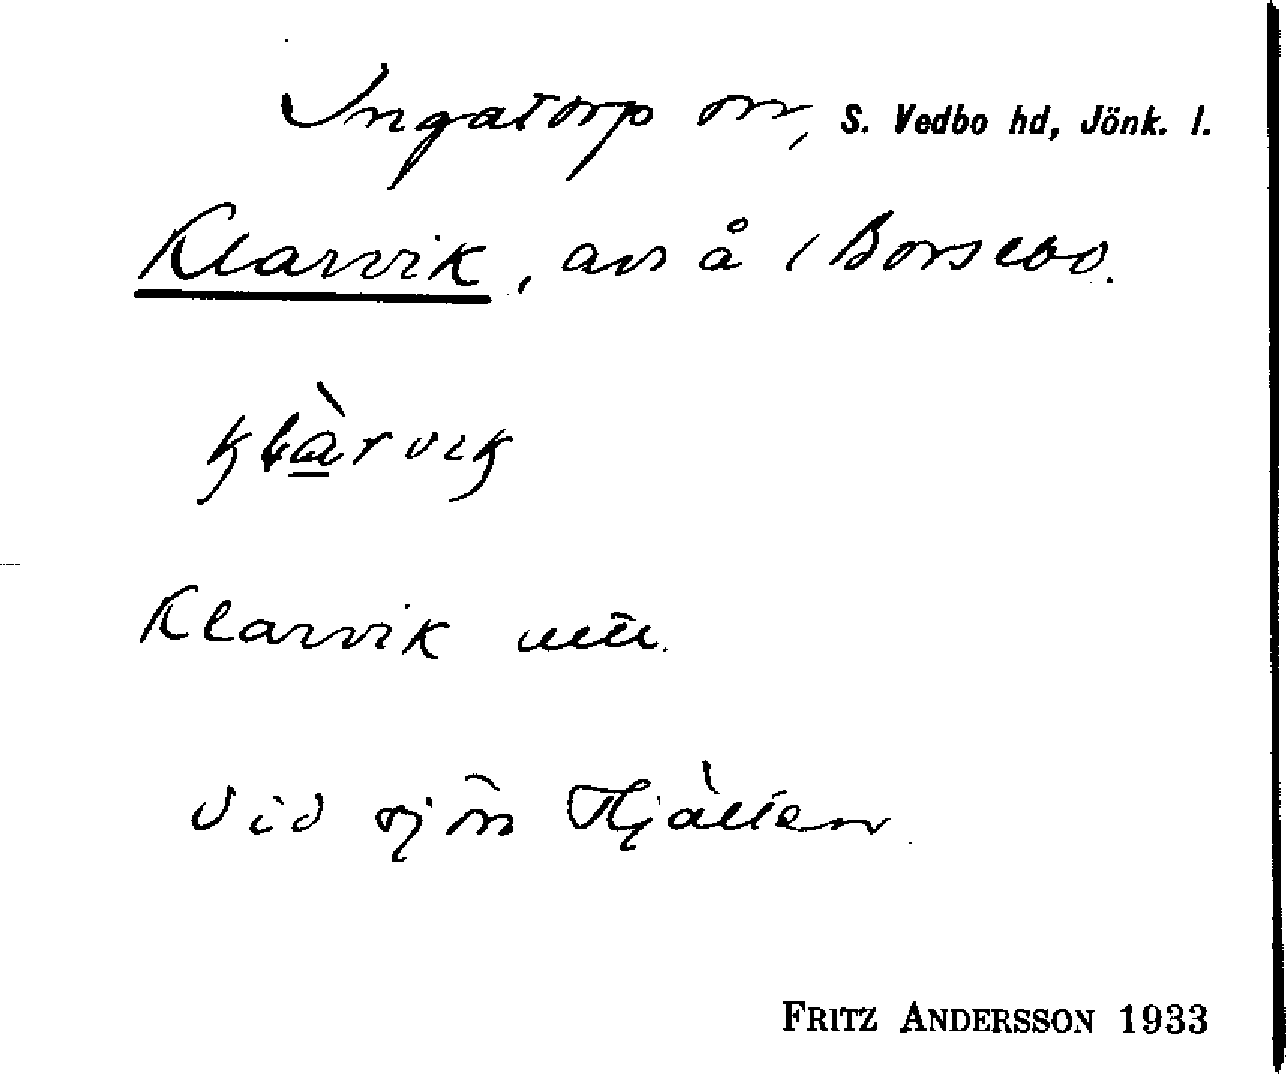 Ingatorp sn, S. Vedbo hd, Jönk. l.
Klarvik, avs å / Borsebo.
Klarvik
Vid sjön Hjälten
FRITZ ANDERSSON 1933